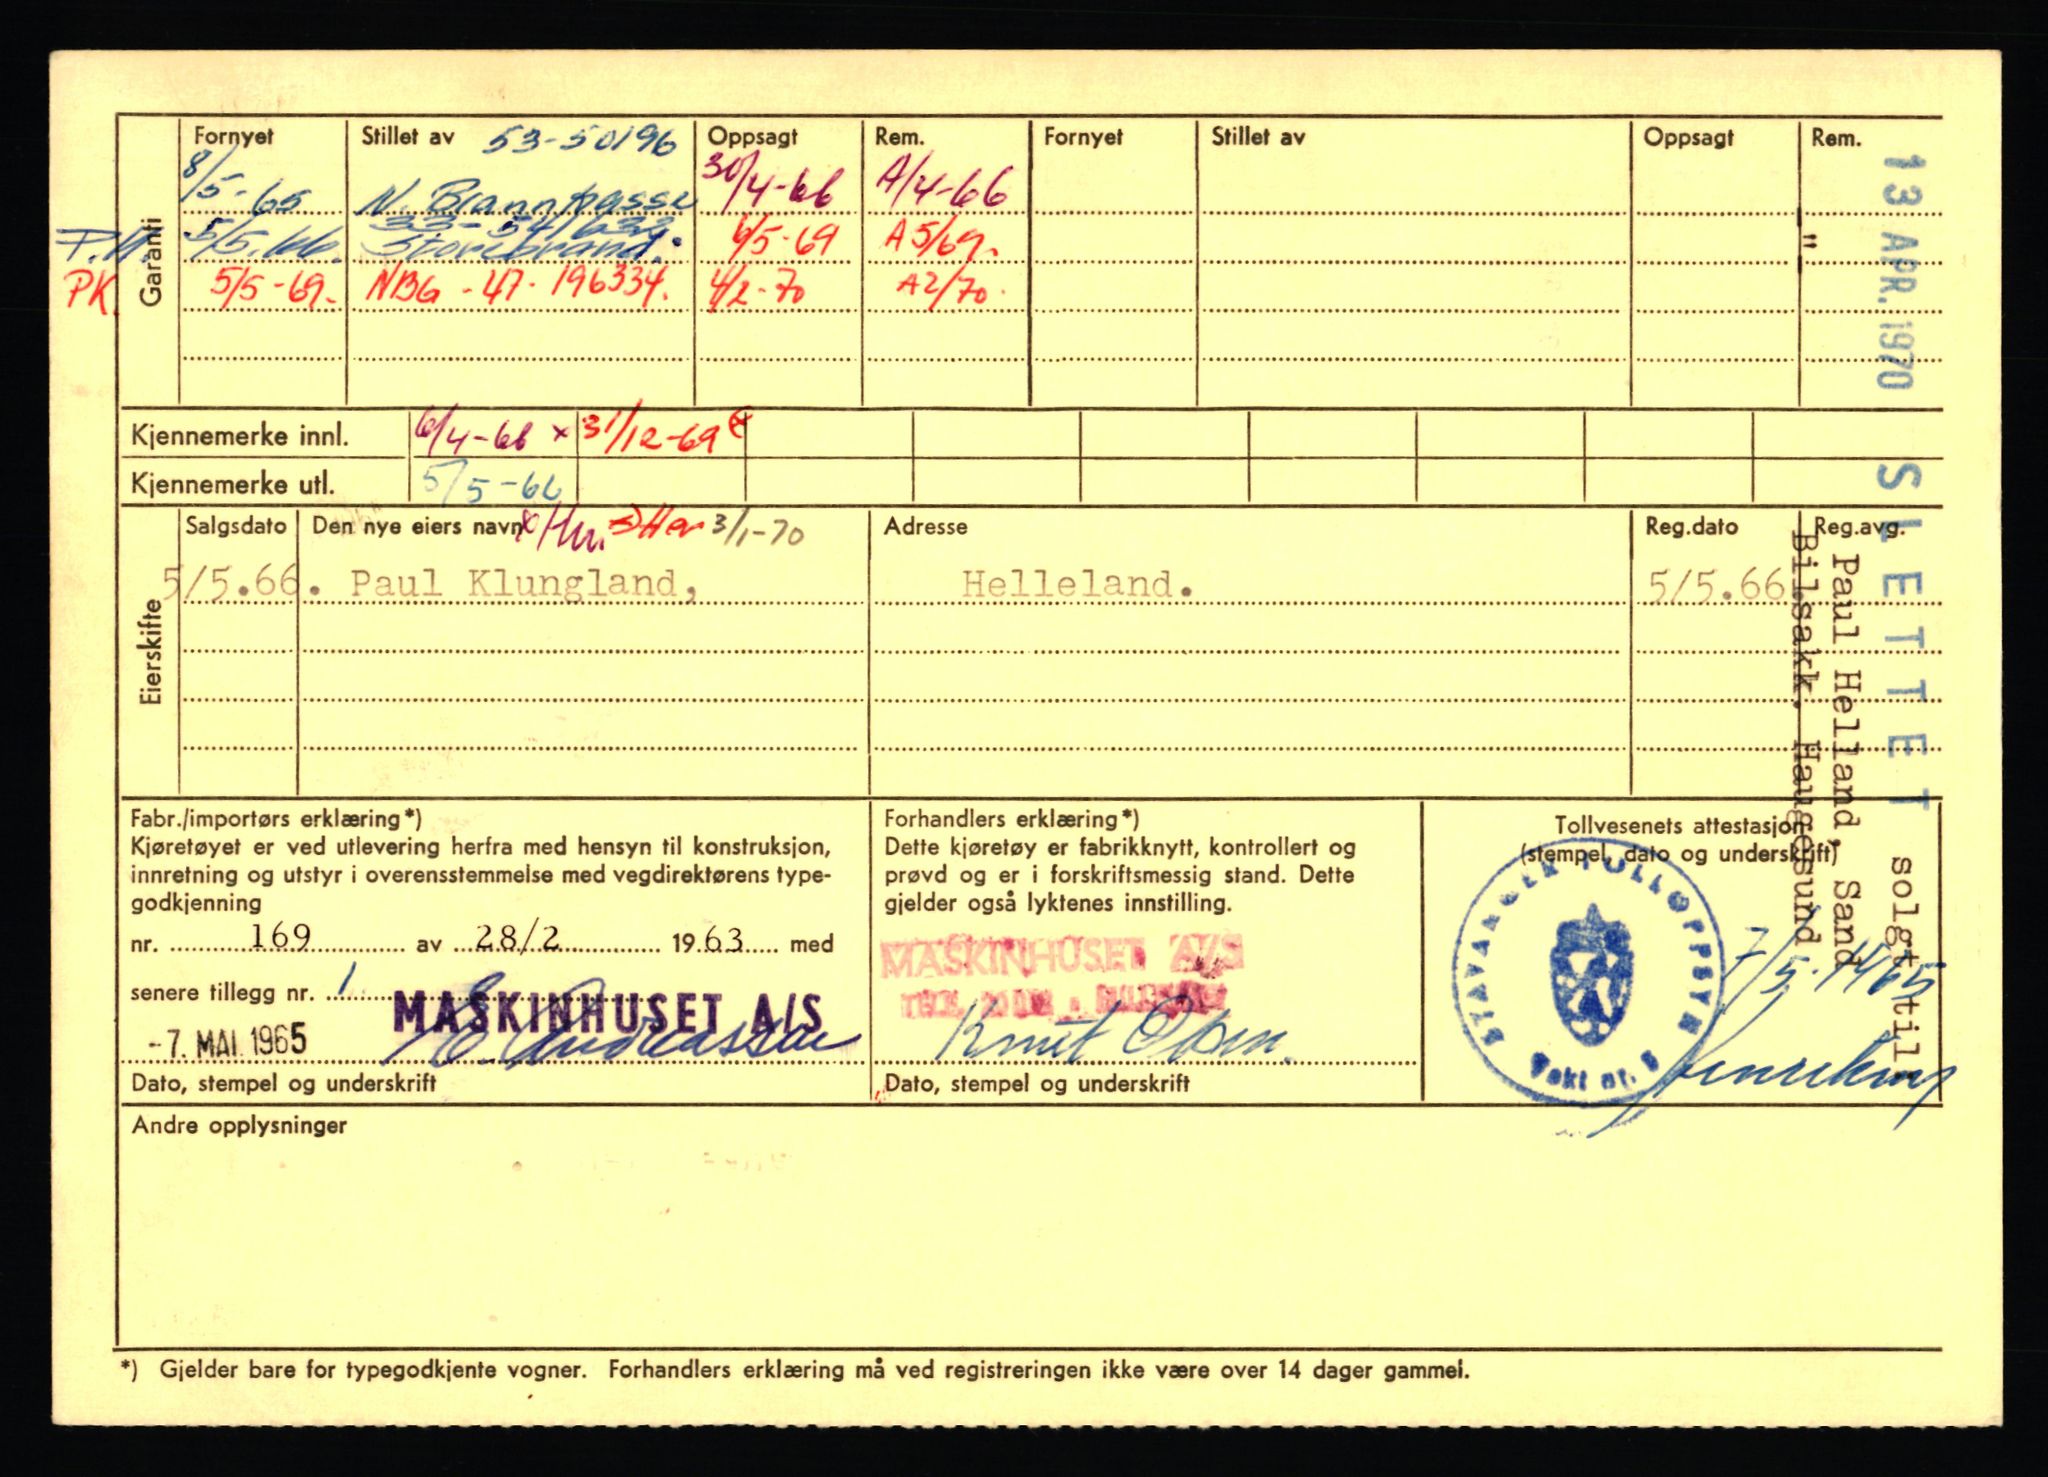 Garanti
Fornyet Stillet av 53-50196 Oppsagt Rem. Fornyet Stillet av Oppsagt Rem.
8/5-65 N. Brannkasse 30/4-66 A/4-66
5/5.66. Storebrand. 6/5-69 A5/69.
PK. 5/5-69. NBG -47- 196334. 4/2-70 A2/70.
Kjennemerke innl. 6/4-66 x 31/12-69 x
Kjennemerke utl. 5/5-66
Eierskifte
Salgsdato Den nye eiers navn 3/1-70 Adresse Reg.dato Reg.avg.
5/5.66. Paul Klungland, Helleland. 5/5.66
Fabr./importørs erklæring*)
Kjøretøyet er ved utlevering herfra med hensyn til konstruksjon,
innretning og utstyr i overensstemmelse med vegdirektørens type-
godkjenning
nr. 169 av 28/2 1963 med
senere tillegg nr. 1
MASKINHUSET A/S
-7. MAI 1965
Dato, stempel og underskrift
Forhandlers erklæring*)
Dette kjøretøy er fabrikknytt, kontrollert og
prøvd og er i forskriftsmessig stand. Dette
gjelder også lyktenes innstilling.
MASKINHUSET A/S
Knut Olsen.
Dato, stempel og underskrift
Tollvesenets attestasjon
(stempel, dato og underskrift)
STAVANGER TOLLOPPSYN
Vakt nr. 8
7/5-1965
13 APR. 1970 SLETTET solgt til
Paul Helland, Sand
" Bilsakk. Haugesund
Andre opplysninger
*) Gjelder bare for typegodkjente vogner. Forhandlers erklæring må ved registreringen ikke være over 14 dager gammel.